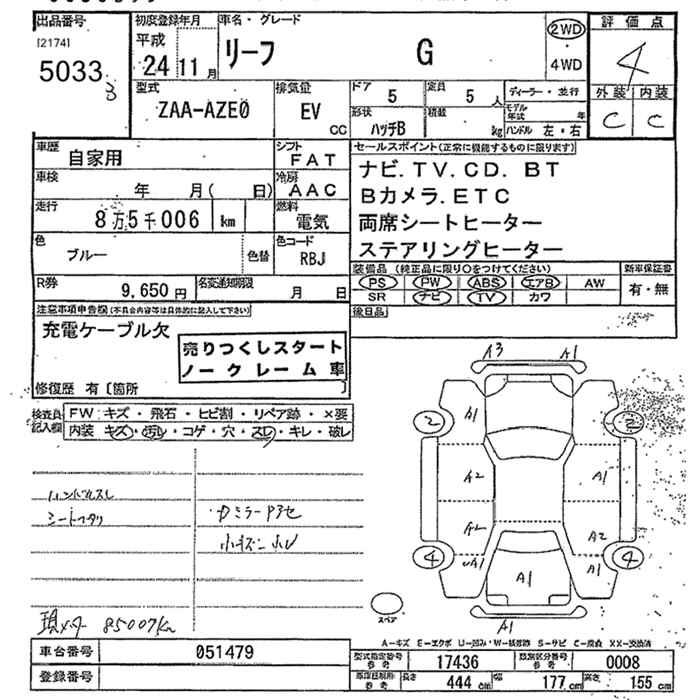 出品番号 初度登録年月 車名・グレード 評価点
[2174] 平成 リーフ G 2WD 4
5033 24 11月 ・4WD
3
型式 排気量 ドア 5 定員 5人 ディーラー・並行 外装 内装
ZAA-AZE0 EV CC 形状 ハッチB 積載 kg モデル年式 年 C C
ハンドル 左・右
車歴 自家用 シフト FAT セールスポイント(正常に機能するものに限ります)
車検 年 月( 日) 冷房 AAC ナビ.TV.CD. BT
走行 8万5千006 km 燃料 電気 Bカメラ.ETC
両席シートヒーター
色 ブルー 色替 色コード RBJ ステアリングヒーター
装備品 (純正品に限り○をつけてください) 新車保証書
R券 9,650円 名変通知期限 月 日 PS PW ABS エアB AW 有・無
SR ナビ TV カワ
注意事項申告欄(不具合内容等は具体的に記入して下さい) 後日品
充電ケーブル欠
売りつくしスタート
ノークレーム車
修復歴 有〔箇所 〕
検査員記入欄 FW:キズ・飛石・ヒビ割・リペア跡・×要
内装 キズ・汚レ・コゲ・穴・スレ・キレ・破レ
A3 A1
2 A1 2
A2 A1
A2 A2
4 A1 A1 A1 4
A1
ハンドルスレ
シートヘタリ
小キズ 小凹
現メータ 85007km
スペア
A-キズ E-エクボ U-凹み W-補修跡 S-サビ C-腐食 XX-交換済
車台番号 051479 型式指定番号 参考 17436 類別区分番号 参考 0008
登録番号 長さ 444cm 幅 177cm 高さ 155cm